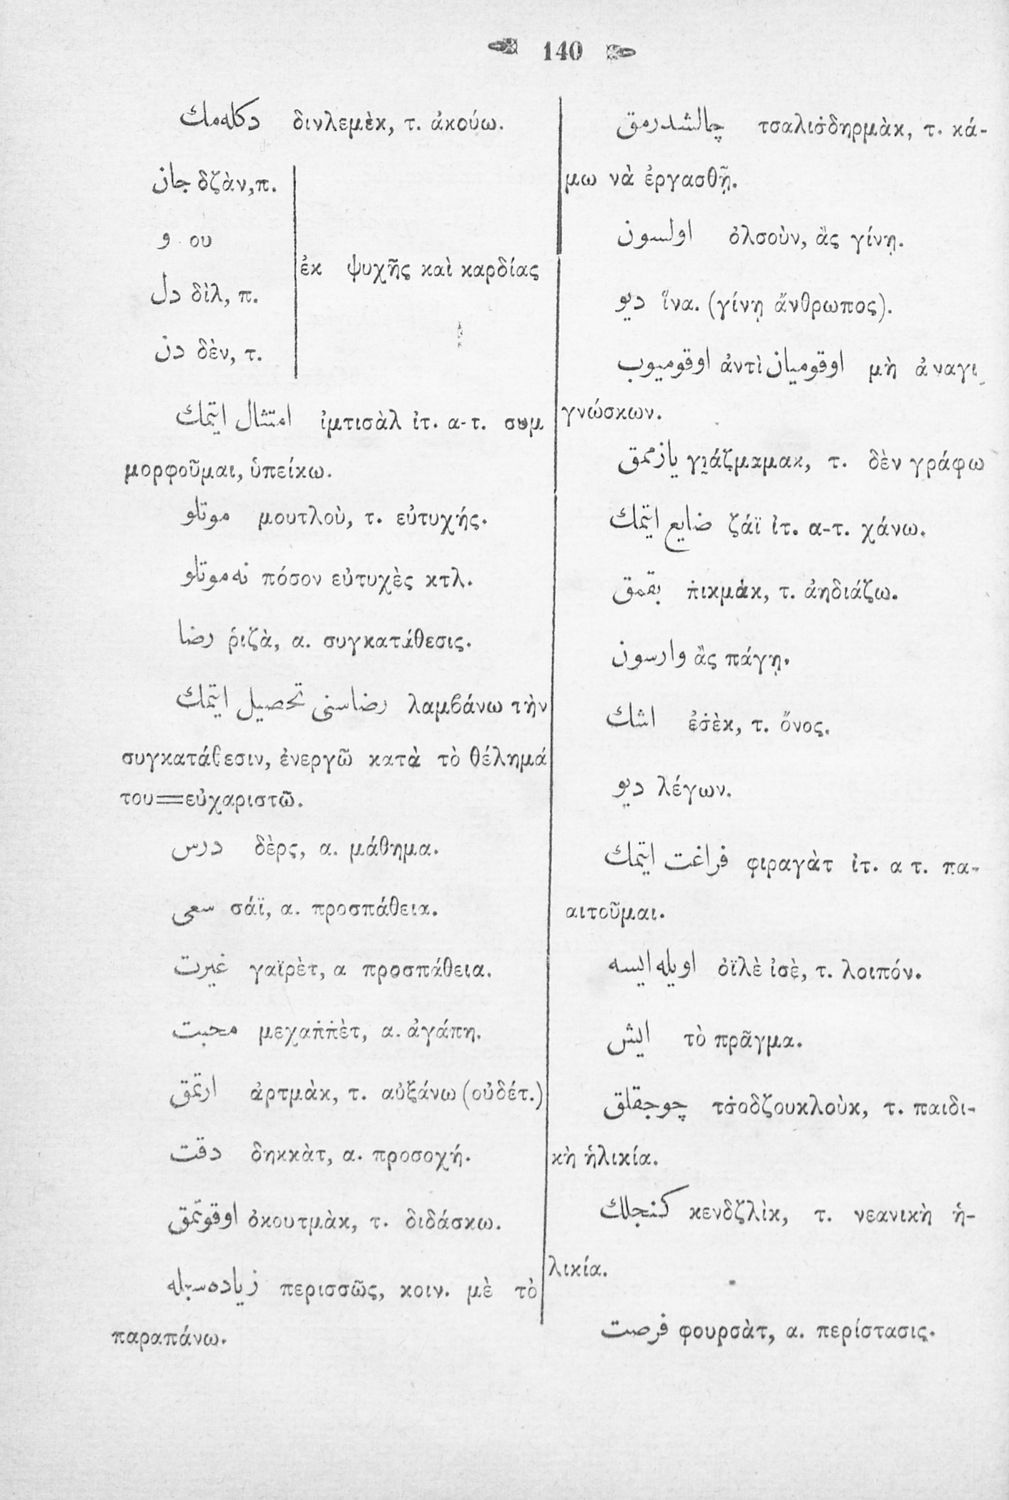 140
دكلهمك δινλεμὲκ, τ. ἀκούω.
جان δζὰν, π.
و ου
ἐκ ψυχῆς καὶ καρδίας
دل δὶλ, π.
دن δὲν, τ.
امتثال ايتمك ἰμτισὰλ ἰτ. α-τ. συμ
μορφοῦμαι, ὑπείκω.
موتلو μουτλοὺ, τ. εὐτυχής.
نه موتلو πόσον εὐτυχὲς κτλ.
رضا ῥιζὰ, α. συγκατάθεσις.
رضاسنى تحصيل ايتمك λαμβάνω τὴν
συγκατάθεσιν, ἐνεργῶ κατὰ τὸ θέλημά
του=εὐχαριστῶ.
درس δὲρς, α. μάθημα.
سعى σάϊ, α. προσπάθεια.
غيرت γαϊρὲτ, α προσπάθεια.
محبت μεχαπ̇π̇ὲτ, α. ἀγάπη.
ارتمق ἀρτμὰκ, τ. αὐξάνω (οὐδέτ.)
دقت δηκκὰτ, α. προσοχή.
اوقوتمق ὀκουτμὰκ, τ. διδάσκω.
زياده سيله περισσῶς, κοιν. μὲ τὸ
παραπάνω.
چالشدرمق τσαλισ̇δηρμὰκ, τ. κά-
μω νὰ ἐργασθῇ.
اولسون ὀλσοὺν, ἂς γίνῃ.
ديو ἵνα. (γίνῃ ἄνθρωπος).
اوقوميوب ἀντὶ اوقوميان μὴ ἀναγι
γνώσκων.
يازممق γιάζμαμακ, τ. δὲν γράφω
ضايع ايتمك ζάϊ ἰτ. α-τ. χάνω.
بقمق π̇ικμὰκ, τ. ἀηδιάζω.
وارسون ἂς πάγῃ.
اشك ἐσ̇ὲκ, τ. ὄνος.
ديو λέγων.
فراغت ايتمك φιραγὰτ ἰτ. α τ. πα-
αιτοῦμαι.
اويله ايسه ὀϊλὲ ἰσὲ, τ. λοιπόν.
ايش τὸ πρᾶγμα.
چوجقلق τσ̇οδζουκλοὺκ, τ. παιδι-
κὴ ἡλικία.
كنجلك κενδζλὶκ, τ. νεανικὴ ἡ-
λικία.
فرصت φουρσὰτ, α. περίστασις.